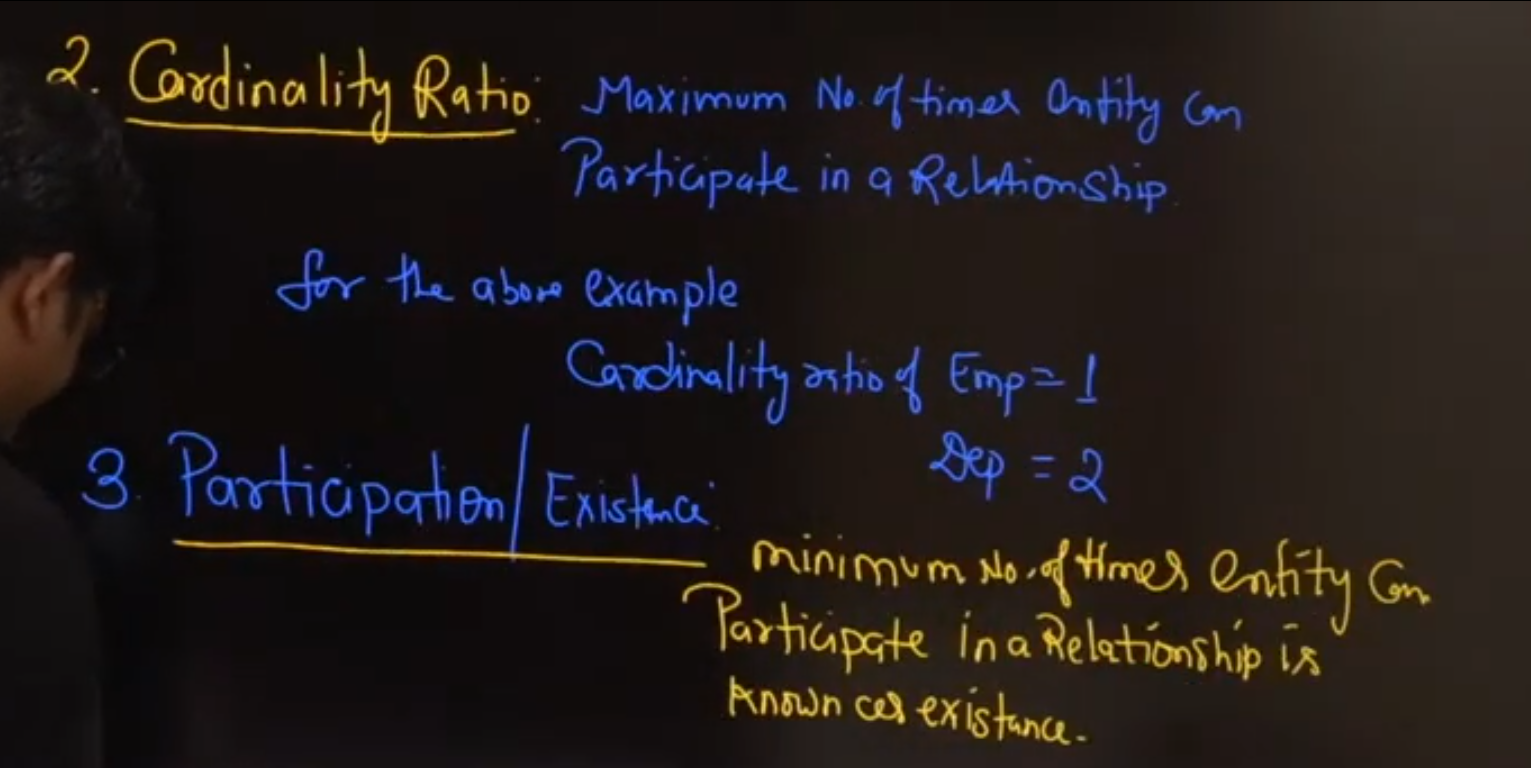 2. Cardinality Ratio: Maximum No. of times Entity Can
Participate in a Relationship.
for the above example
Cardinality ratio of Emp = 1
Dep = 2
3. Participation/Existence:
minimum No. of times entity Can
Participate in a Relationship is
known as existance.